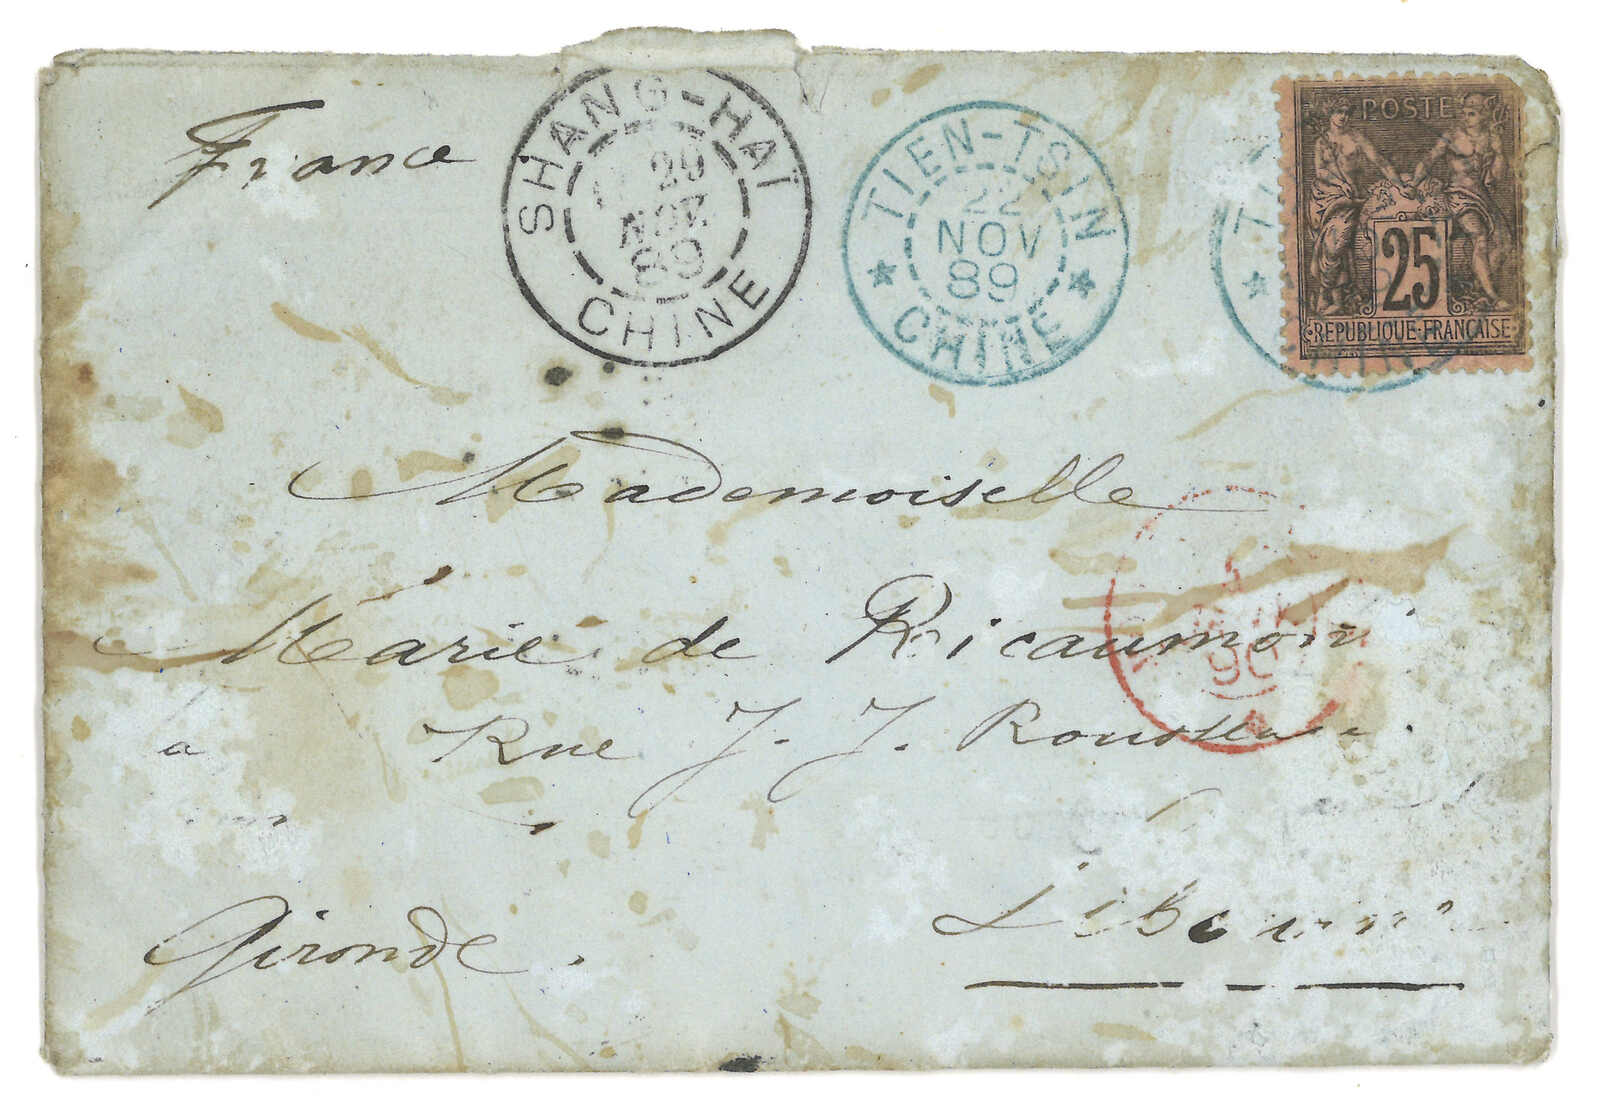 France
SHANG-HAÏ
NOV
89
CHINE
TIEN-TSIN
22
NOV
89
CHINE
POSTE
25
REPUBLIQUE FRANÇAISE
Mademoiselle
Marie de Ricaumont
à Rue J. J. Rousseau.
90
Gironde.
Libourne